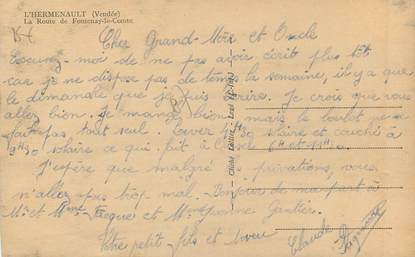 L'HERMENAULT (Vendée)
La Route de Fontenay-le-Comte
Cher Grand-Mère et Oncle
Excusez-moi de ne pas avoir écrit plus tôt
car je ne dispose pas de temps la semaine, il y a que
le dimanche que je puis écrire. Je crois que vous
allez bien. Je mange bien, mais le boulot ne se
fait pas tout seul. Lever 4H30 solaire et couché à
9H30 solaire ce qui fait à l'heure 6H et 11H30.
J'espère que malgré les privations, vous
n'allez pas trop mal. Bonjour de ma part à
Mr et Mme et Mr Yvonne Gautier.
Votre petit-fils et neveu
Claude